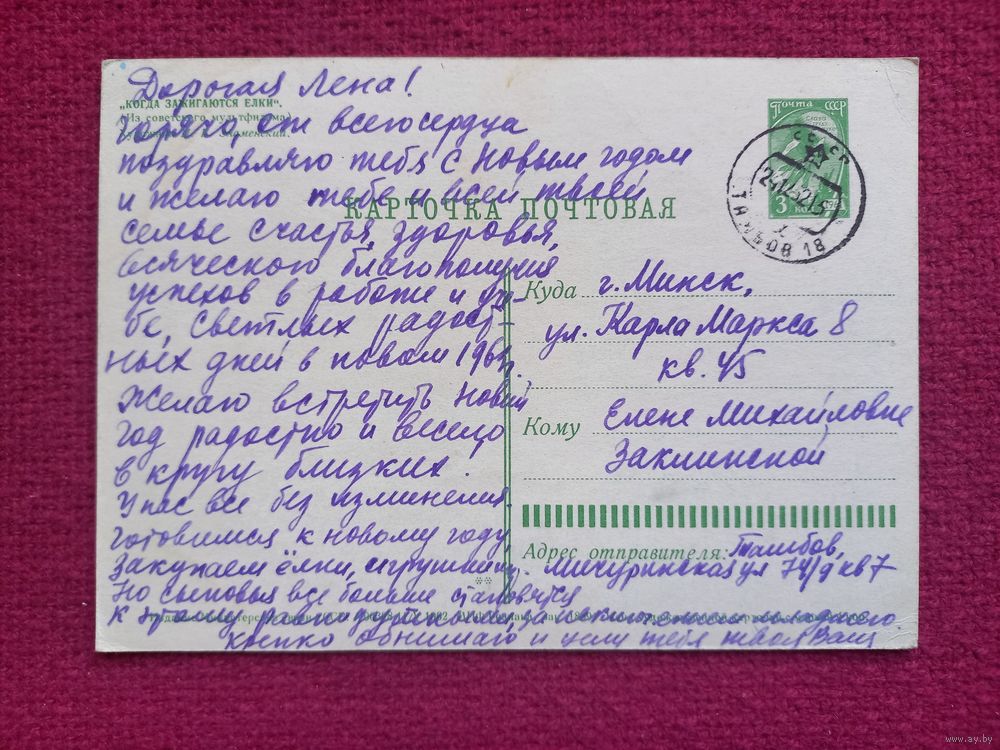 Дорогая Лена!
„КОГДА ЗАЖИГАЮТСЯ ЕЛКИ".
(Из советского мультфильма)
Горячо, от всего сердца
поздравляю тебя с Новым годом
и желаю тебе и всей твоей
семье счастья, здоровья,
всяческого благополучия
успехов в работе и учё-
бе, светлых радост-
ных дней в новом 196 г.
Желаю встретить Новый
год радостно и весело
в кругу близких.
У нас все без изминения.
Готовимся к новому году,
закупаем ёлки, игрушки.
Но сыновья все больше становятся
к этому
крепко обнимаю и целую тебя твоя Валя
Почта СССР
3 коп
ТАМБОВ 18
КАРТОЧКА ПОЧТОВАЯ
Куда г. Минск,
ул. Карла Маркса 8
кв. 45
Кому Елене Михайловне
Заклинской
Адрес отправителя: Тамбов,
Мичуринская ул 74/9 кв 7
www.ay.by